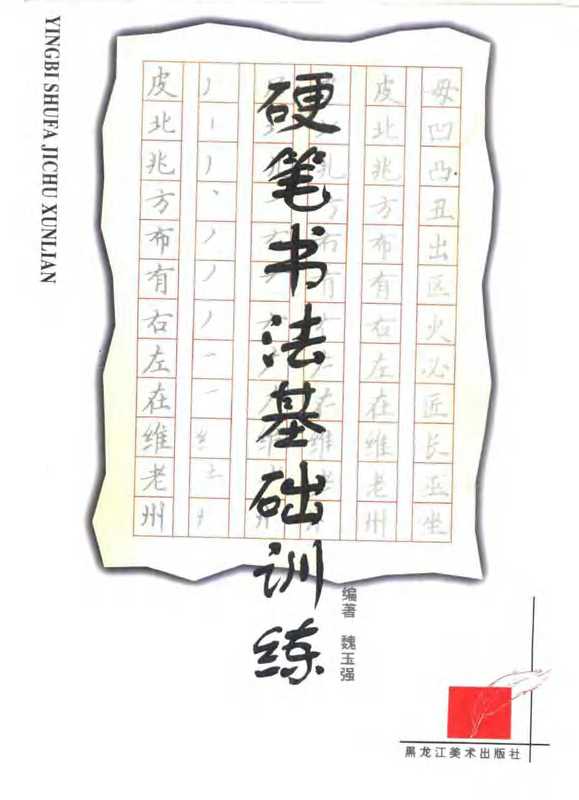 YINGBI SHUFA JICHU XUNLIAN
硬笔书法基础训练
编著 魏玉强
毋凹凸丑出区火必匠长亚坐
皮北兆方布有右左在维老州
皮北兆方布有右左在维老州
黑龙江美术出版社